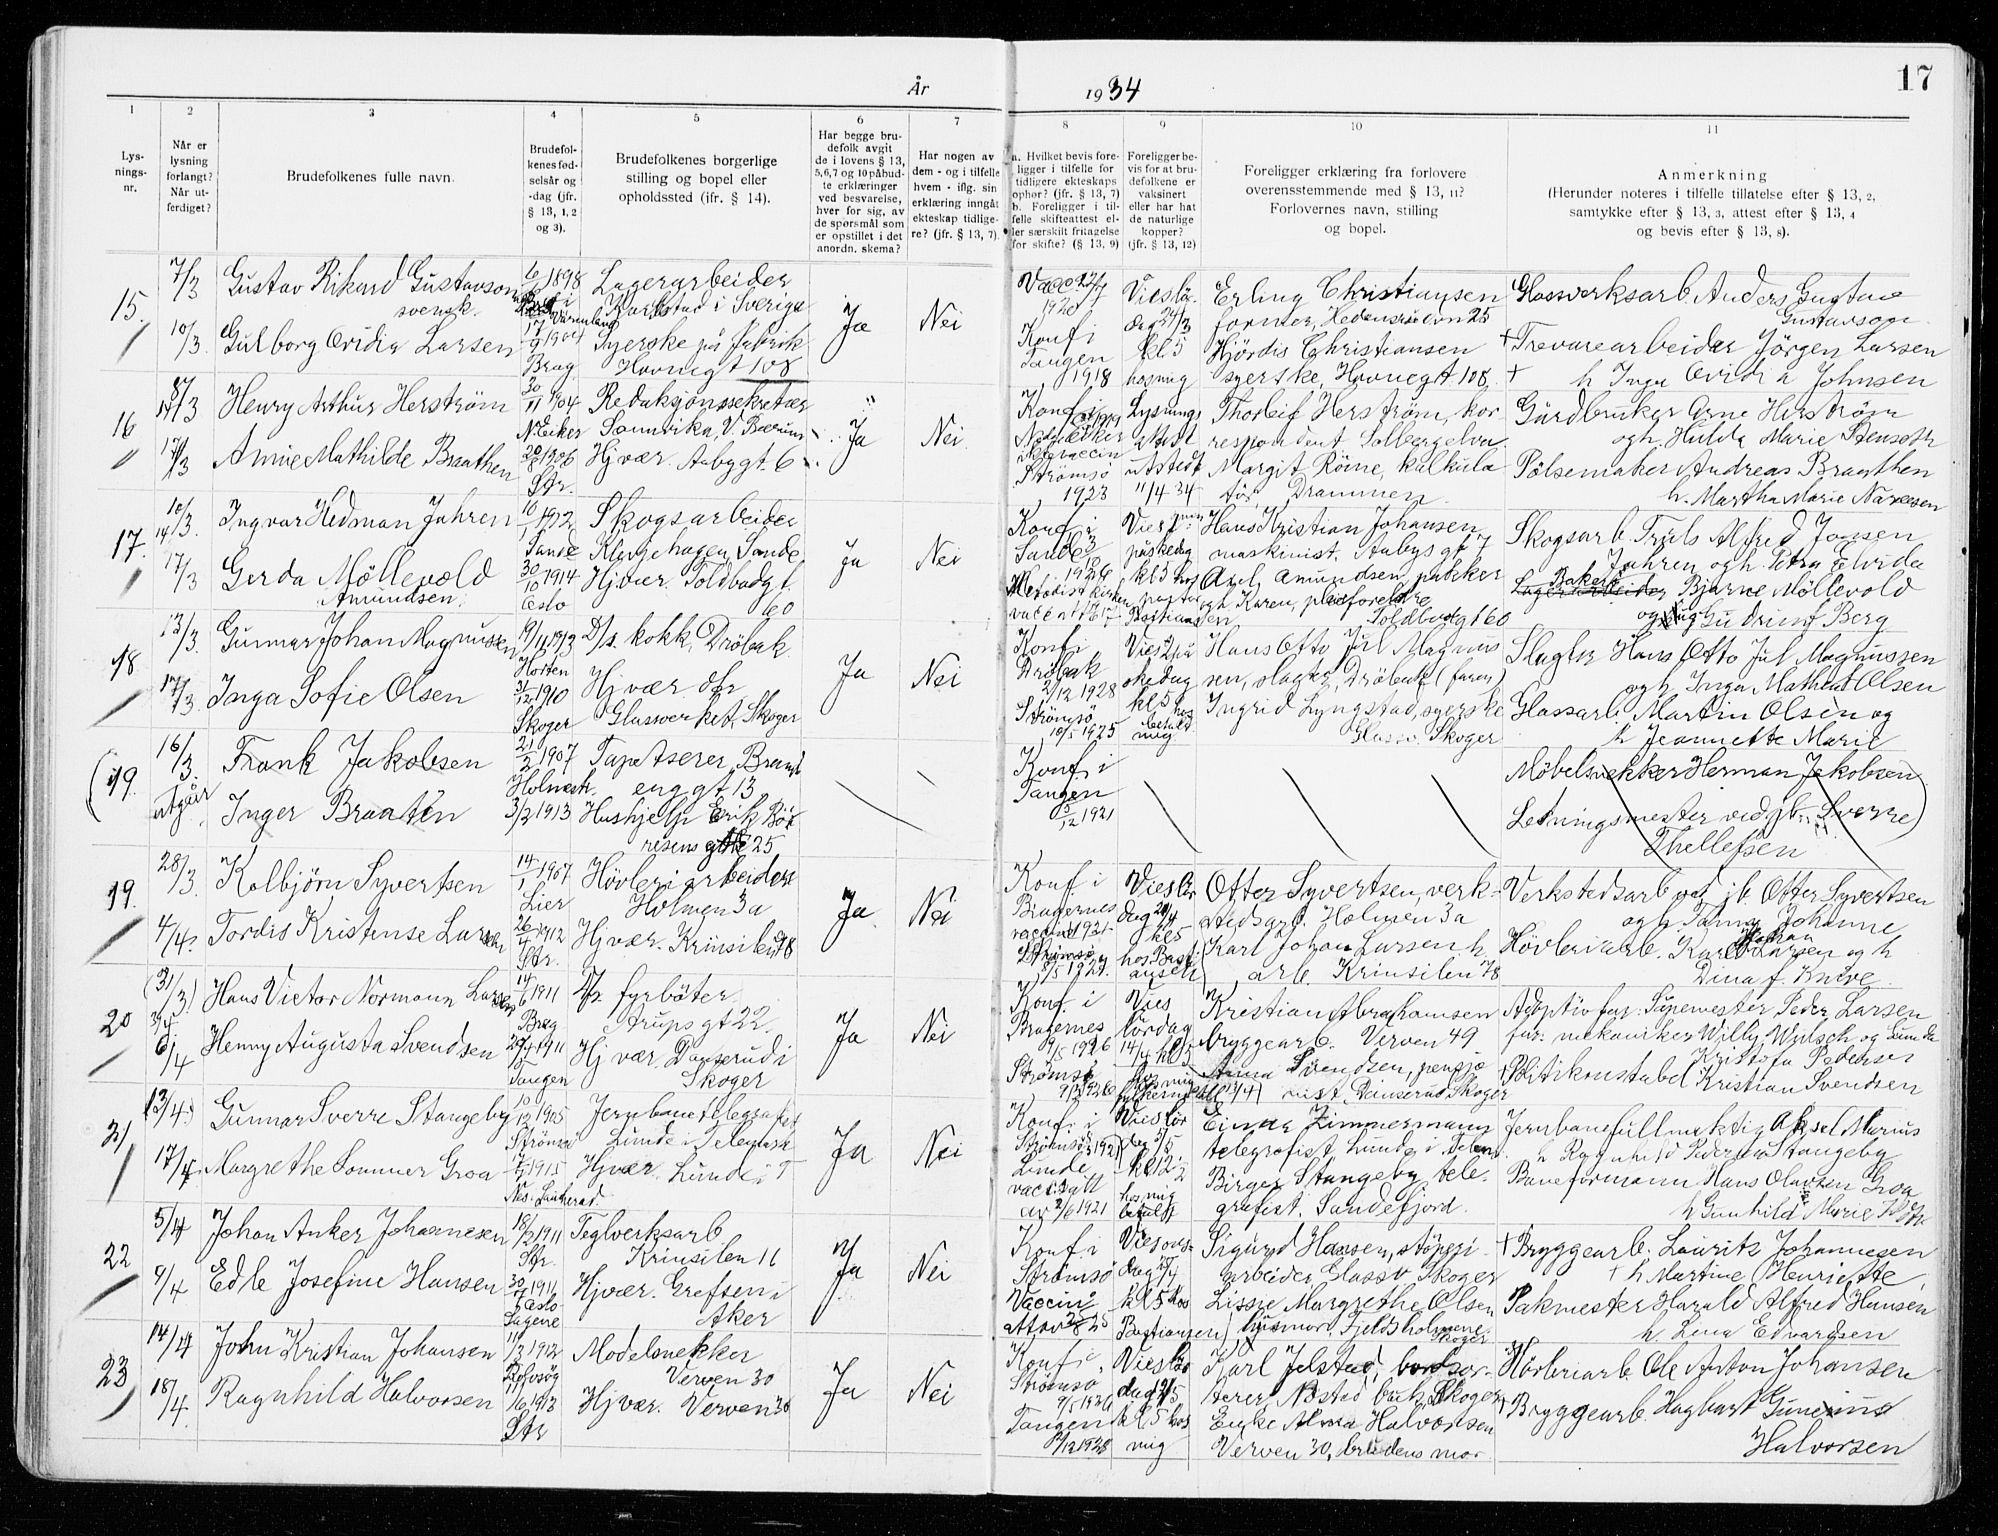 År 1934
17
1 2 3 4 5 6 7 8 9 10 11
Lys-
nings-
nr.
Når er
lysning
forlangt?
Når ut-
ferdiget?
Brudefolkenes fulle navn.
Brudefol-
kenes fød-
selsår og
-dag (jfr.
§ 13, 1, 2
og 3).
Brudefolkenes borgerlige
stilling og bopel eller
opholdssted (ifr. § 14).
Har begge bru-
defolk avgit
de i lovens § 13,
5,6,7 og 10 påbud-
te erklæringer
ved besvarelse,
hver for sig, av
de spørsmål som
er opstillet i det
anordn. skema?
Har nogen av
dem - og i tilfelle
hvem - iflg. sin
erklæring inngåt
ekteskap tidlige-
re? (jfr. § 13, 7).
a. Hvilket bevis fore-
ligger i tilfelle for
tidligere ekteskaps
ophør? (jfr. § 13, 7)
b. Foreligger i til-
felle skifteattest el-
ler særskilt fritagelse
for skifte? (§ 13, 9)
Foreligger be-
vis for at bru-
defolkene er
vaksinert
eller har hat
de naturlige
kopper?
(jfr. § 13, 12)
Foreligger erklæring fra forlovere
overensstemmende med § 13, 11?
Forlovernes navn, stilling
og bopel.
Anmerkning
(Herunder noteres i tilfelle tillatelse efter § 13, 2,
samtykke efter § 13, 3, attest efter § 13, 4
og bevis efter § 13, 8).
15.
7/3
10/3
Gustav Rikard Gustavson
svensk.
Gulborg Ovidia Larsen
6/ 1898
17/9 1904
Brag.
Lagerarbeider
Karlstad i Sverige
Syerske på fabrik
Havnegt 108
Ja
Nei
1920
Konf i
Tangen
1918
Vieslör-
dag 24/3
kl 5
hos mig
Erling Christiansen
former, Hedensrudvn 25
Hjördis Christiansen
syerske, Havnegt 108.
Glassverksarb. Anders Gustav
Gustavson
+ Trevarearbeider Jörgen Larsen
+ h Inga Ovidia Johnsen
16
17/3
Henry Arthur Herström
Annie Mathilde Braathen
30/11 1904
N. Eiker
20/8 1906
Str.
Redaksjonssekretær
Sanvika, V. Bærum
Hjvær. Aabygt. 6
Ja
Nei
Konf i
Strömsö
1923
Lysnings
attest
utstedt
11/4 34
Thorleif Herström, kor
respondent Solbergelva
Margit Röine, kalkula
tör, Drammen.
Gårdbruker Arne Herström
og h. Hulda Marie Stenseth
Pölsemaker Andreas Braathen
h. Martha Marie
17.
10/3
17/3
Ingvar Hedman Jahren
Gerda Möllevold
Amundsen.
1912
Sande
30/10 1914
Oslo
Skogsarbeider
Klevjehagen, Sande
Hjvær. Toldbodgt.
60
Ja
Nei
Konf i
Sande
1926
Metodistkirken
Vies
påskedag
kl 5 hos
pastor
Bastiansen
Hans Kristian Johansen
maskinist. Aabygt 7
Axel Amundsen, pakker
og h Karen, pleieforeldre
Toldbodgt 60
Skogsarb. Truls Alfred Jonsen
Jahren og h. Petra Elvida
Baker Bjarne Möllevold
og Gudrun f Berg
18
13/3
17/3
Gunnar Johan Magnussen
Inga Sofie Olsen
19/11 1913
Horten
31/12 1910
Skoger
D/s. kokk, Dröbak
Hj vær dr
Glassverket, Skoger
Ja
Nei
Konf i
Dröbak
2/12 1928
Strömsö
10/5 1925
Vies 2 på
skedag
kl 5 hos
mig
Hans Otto Jul Magnus
sen, slagter, Dröbak (faren)
Ingrid Lyngstad, syerske
Glassv. Skoger
Slagter Hans Otto Jul Magnussen
og h Inga Mathea Olsen
Glassarb. Martin Olsen og
h Jeannette Marie
(19.
16/3.
utgår
Frank Jakobsen
Inger Braaten
21/2 1907
Holmestr.
3/2 1913
Tapetserer, Brands
enggt 13
Hushjelp Erik Bör
resens gate 25
Konf i
Tangen
1921
Möbelsnekker Herman Jakobsen
Ledningsmester ved jb. Sverre)
Thellefsen
19.
28/3
4/4.
Kolbjörn Syvertsen
Tordis Kristense Larsen
14/1 1907
Lier
26/4 1912
Str.
Hövleriarbeider
Holmen 3a
Hjvær. Krinsilen 78
Ja
Nei
Konf i
Bragernes
Strömsö
Vieslör
dag
kl 5
hos Basti
ansen
Otter Syvertsen, verk-
stedsarb. Holmen 3a
Karl Johan Larsen h.
arb. Krinsilen 78
Verkstedsarb ved jb. Otter Syvertsen
og h Johanne
Hövleriarb. Karl Johan Larsen og h
Dina f. Knive.
20
(31/3)
6/4
Hans Victor Normann Larsen
Henny Augusta Svendsen
14/6 1911
Brag
1911
Tangen
D/s. fyrböter
Strups gt 22.
Hj vær Danserud i
Skoger
Ja
Nei
Konf. i
Bragernes
9/5 1926
Strömsö
Vies
lördag
14/4 kl 5
hos mig
Kristian Abrahamsen
bryggearb. Verven 49
Anna Svendsen, pensjo
nist, Danserud Skoger
Adoptivfar. Pipemester Peder Larsen
far. mekaniker Willy Wunsch og
Kristofa Pedersen
+ Politikonstabel Kristian Svendsen
21
(13/4.)
17/4
Gunnar Sverre Stangeby
Margrethe Sommer Groa
10/12 1905
Strömsö
1915
Nes. Sauherad.
Jernbanetelegrafist
Lunde i Telemark
Hjvær. Lunde i T
Ja
Nei
Konf. i
Strömsö 1921
Lunde
2/6 1921
Vies lör
dag 5/5
kl 12 1/2
hos mig
Einar Zimmermann
telegrafist, Lunde i Telem.
Birger Stangeby tele-
grafist. Sandefjord.
Jernbanefullmektig Aksel Marius
h Ragnhild Pedersen Stangeby
Baneformann Hans Olavsen Groa
h Gunhild Marie
22
5/4
9/4
Johan Anker Johannesen
Edle Josefine Hansen
18/2 1911
Str.
30/7 1911
Oslo-
Sagene
Teglverksarb
Krinsilen 11
Hjvær. Grefsen i
Aker
Ja
Nei
Konf i
Strömsö
Vaccin.
Vies ons-
dag
kl 5 hos
Bastiansen
Sigurd Hansen, stöperi-
arbeider, Glassv Skoger
Lissie Margrethe Olsen
husmor, Fjeldsholmene
Skoger
+ Bryggearb. Lauritz Johannesen
+ h Martine Henriette
Pakmester Harald Alfred Hansen
h. Lina Edvardsen
23
14/4
18/4
John Kristian Johansen
Ragnhild Halvorsen
11/3 1912
Rolvsög
1913
Str
Modelsnekker
Verven 30
Hjvær. Verven 30
Ja
Nei
Konf i
Strömsö
9/5 1926
Tangen
1928
Vieslör
dag
kl 5 hos
mig
Karl Jelstad, bordsor-
terer, Nöstad bruk Skoger
Enke Alma Halvorsen
Verven 30, brudens mor
Hövleriarb Ole Anton Johansen
+ Bryggearb. Hagbart Gunerius
Halvorsen